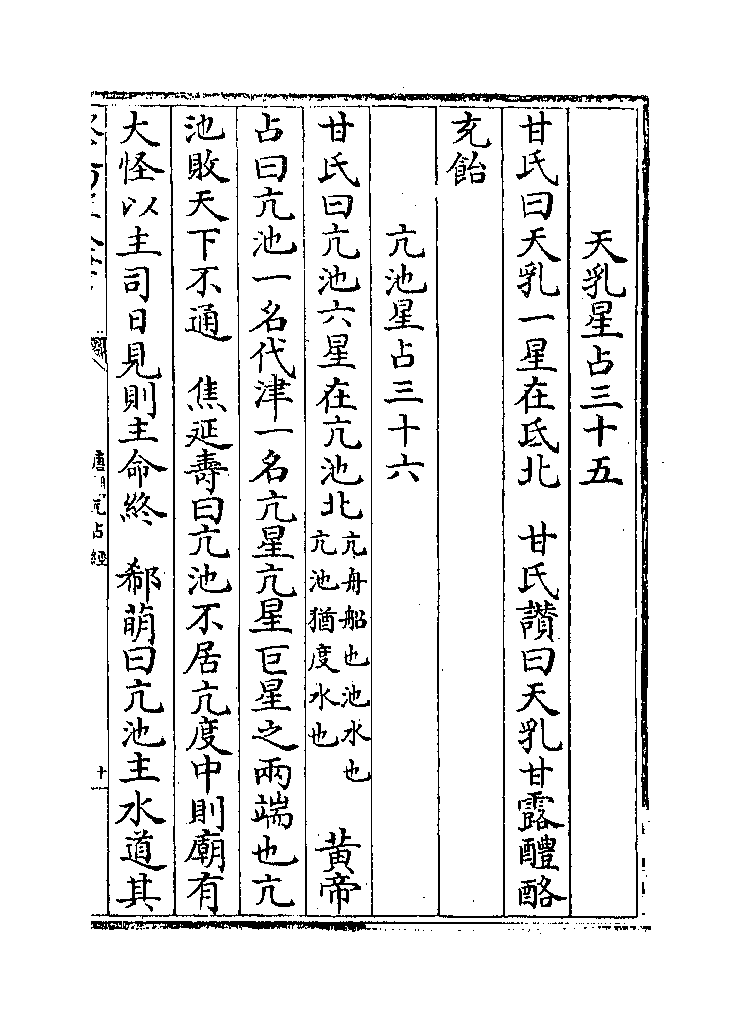 天乳星占三十五
甘氏曰天乳一星在氐北　甘氏讚曰天乳甘露醴酪
充飴
亢池星占三十六
甘氏曰亢池六星在亢池北亢舟船也池水也亢池猶度水也　黄帝
占曰亢池一名代津一名亢星亢星巨星之兩端也亢
池敗天下不通　焦延壽曰亢池不居亢度中則廟有
大怪以主司日見則主命終　郗萌曰亢池主水道其
唐開元占經
十